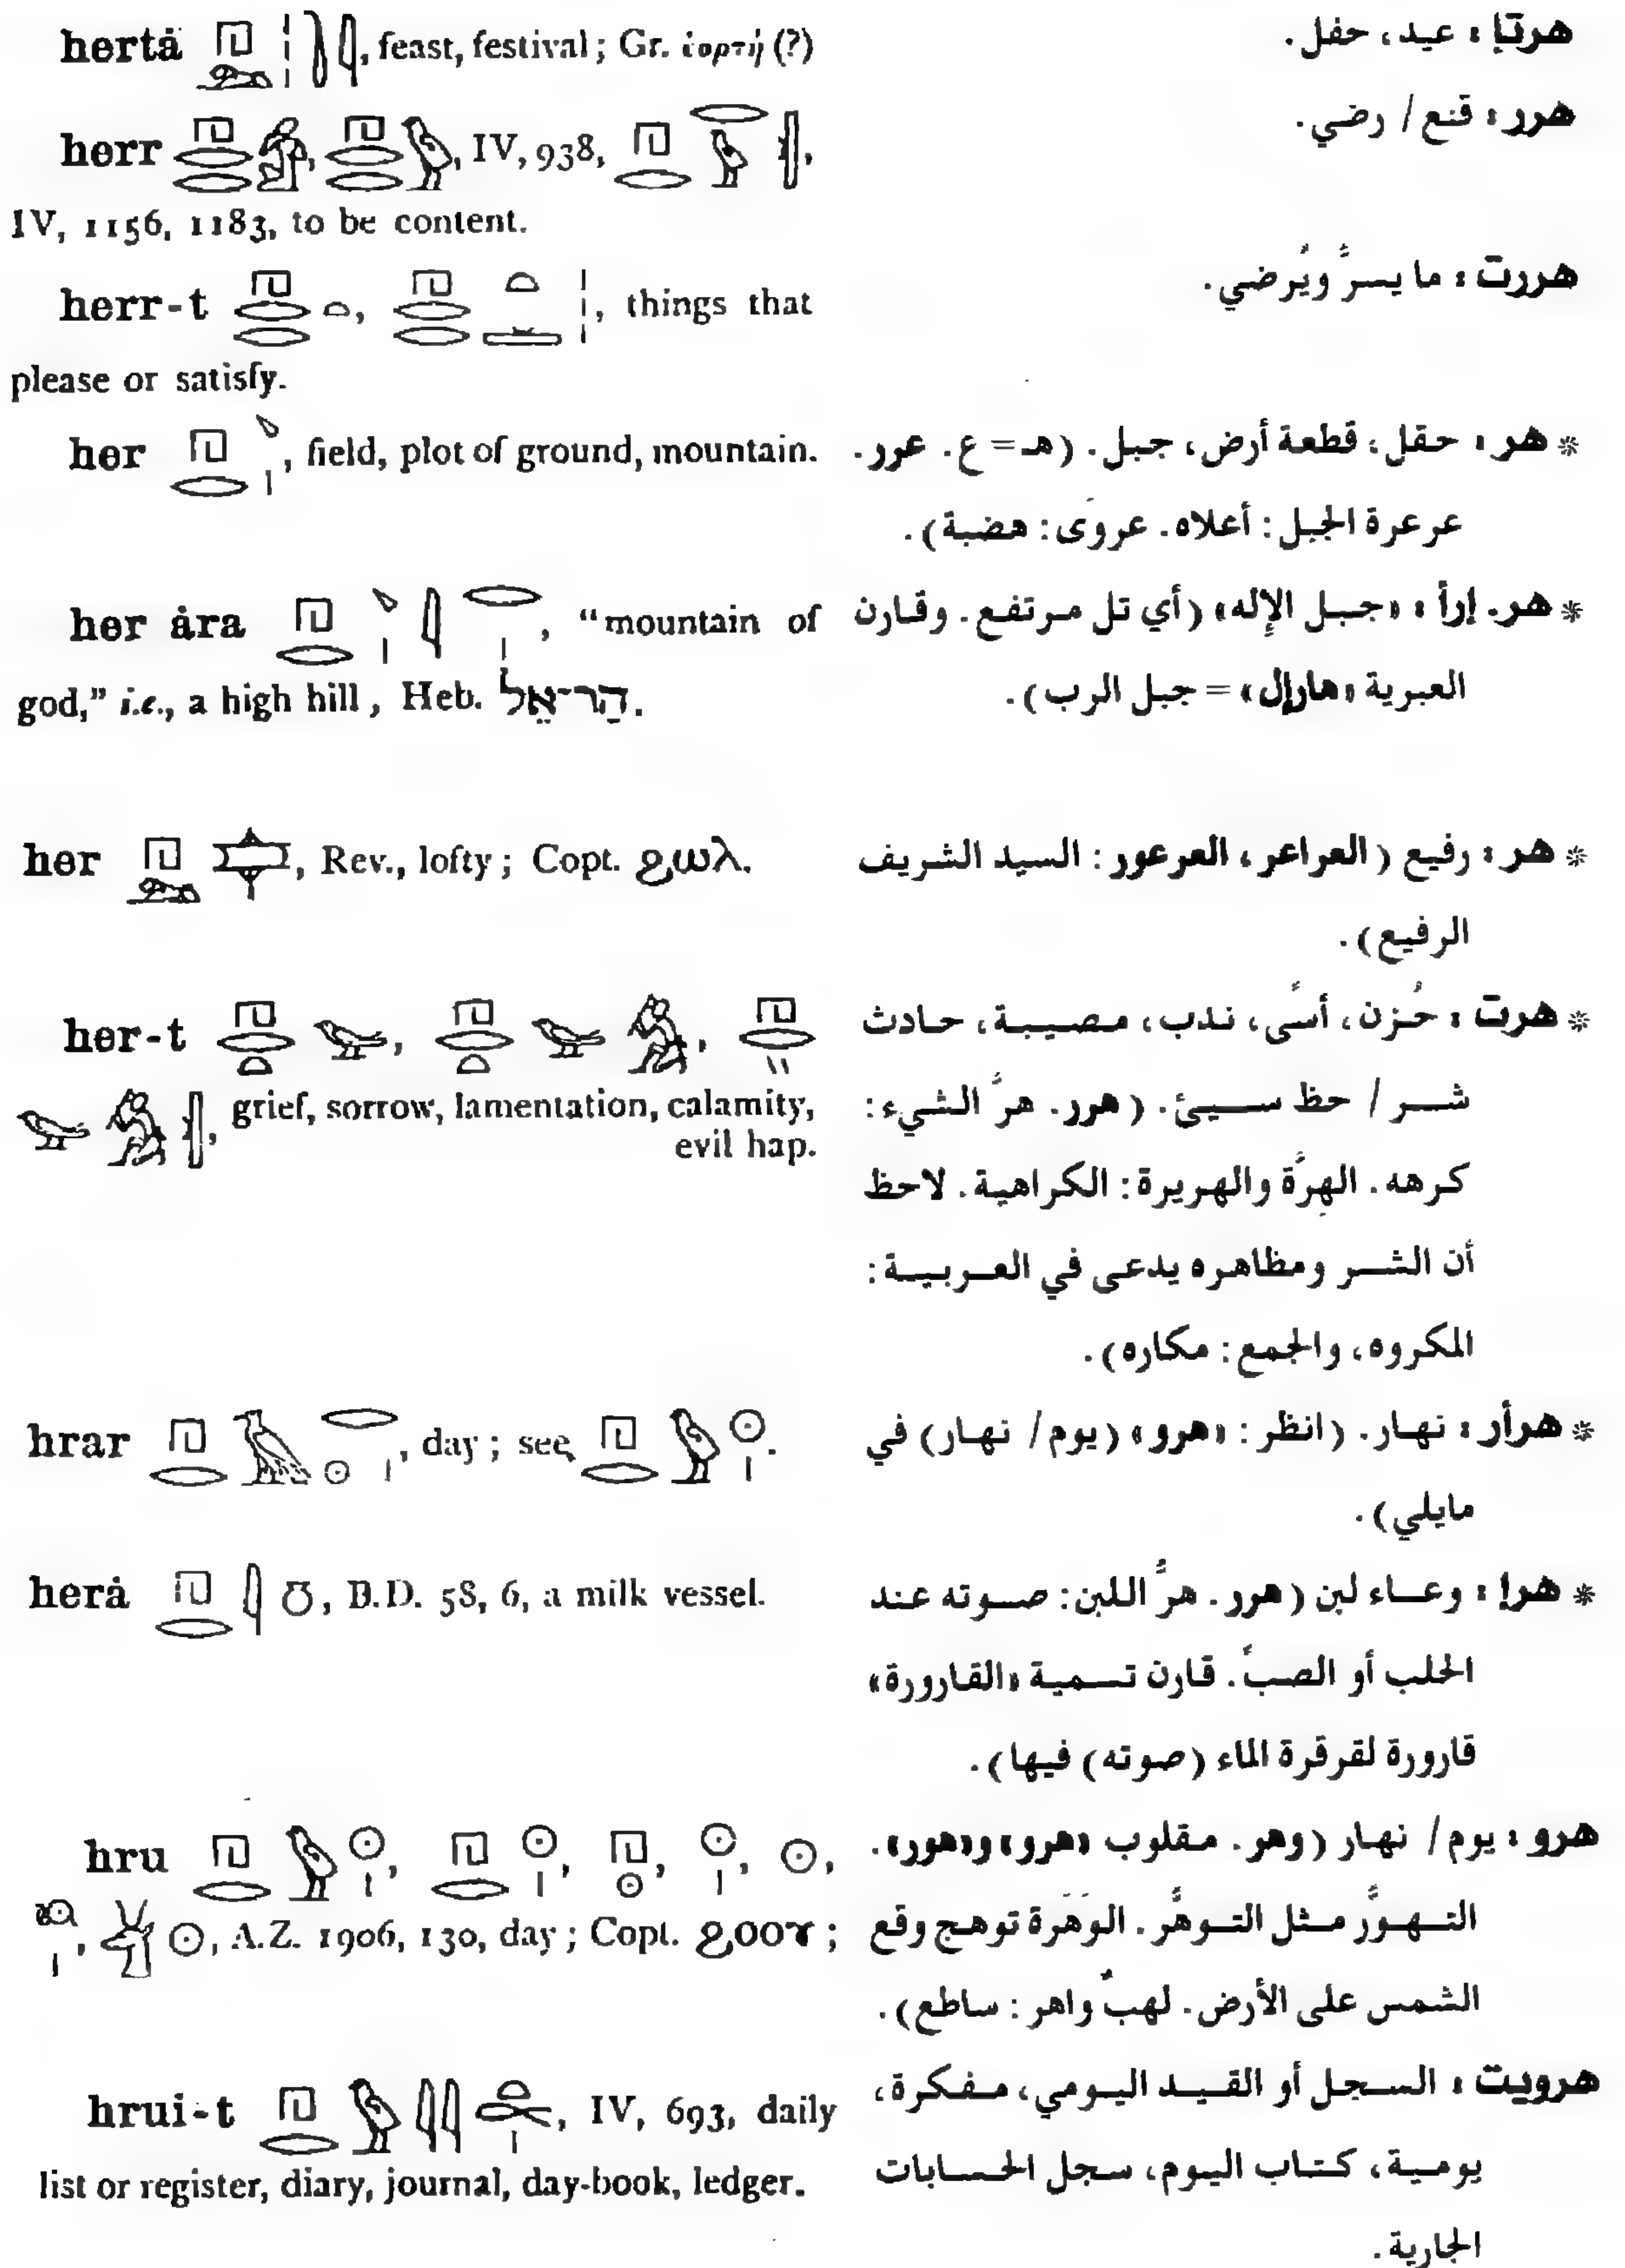 hertȧ , feast, festival ; Gr. ἑορτή (?)
herr , , IV, 938, ,
IV, 1156, 1183, to be content.
herr-t , , things that
please or satisfy.
her , field, plot of ground, mountain.
her ȧra , “mountain of
god,” i.e., a high hill , Heb. הַר־אֵל.
her , Rev., lofty ; Copt. ϩωλ.
her-t , , 
, grief, sorrow, lamentation, calamity,
evil hap.
hrar , day ; see .
herȧ , B.D. 58, 6, a milk vessel.
hru , , , , ,
, , A.Z. 1906, 130, day ; Copt. ϩοοⲩ ;
hrui-t , IV, 693, daily
list or register, diary, journal, day-book, ledger.
هرتإ : عيد، حفل.
هرر : قنع / رضي.
هررت : ما يسرُّ ويُرضي.
* هر : حقل، قطعة أرض، جبل. (هـ = ع. عرر.
عرعرة الجبل : أعلاه. عروَى : هضبة).
* هر. إرأ : «جبل الإله» (أي تل مرتفع. وقارن
العبرية «هارإل» = جبل الرب).
* هر : رفيع (العراعر، العرعور : السيد الشريف
الرفيع).
* هرت : حُزن، أسًى، ندب، مصيبة، حادث
شر / حظ سيئ. (هرر. هرَّ الشيء :
كرهه. الهِرَّة والهريرة : الكراهية. لاحظ
أن الشر ومظاهره يدعى في العربية :
المكروه، والجمع : مكاره).
* هرأر : نهار. (انظر : «هرو» (يوم / نهار) في
مايلي).
* هرإ : وعاء لبن (هرر. هرَّ اللبن : صوته عند
الحلب أو الصبّ. قارن تسمية «القارورة»
قارورة لقرقرة الماء (صوته) فيها).
هرو : يوم / نهار (وهر. مقلوب «هرو» و«هور».
التهوُّر مثل التوهُّر. الوَهَرة توهج وقع
الشمس على الأرض. لهبٌ واهر : ساطع).
هرويت : السجل أو القيد اليومي، مفكرة،
يومية، كتاب اليوم، سجل الحسابات
الجارية.